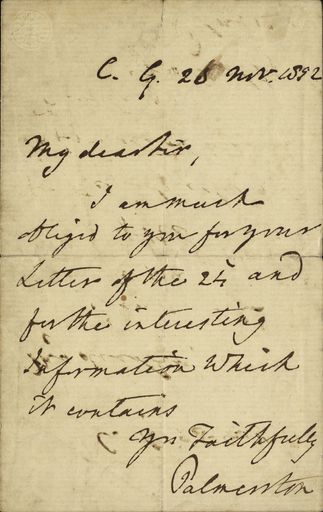 C. G. 26 Novr. 1852
My dear Sir,
I am much
obliged to you for your
Letter of the 24 and
for the interesting
Information Which
it contains
Yrs Faithfully
Palmerston